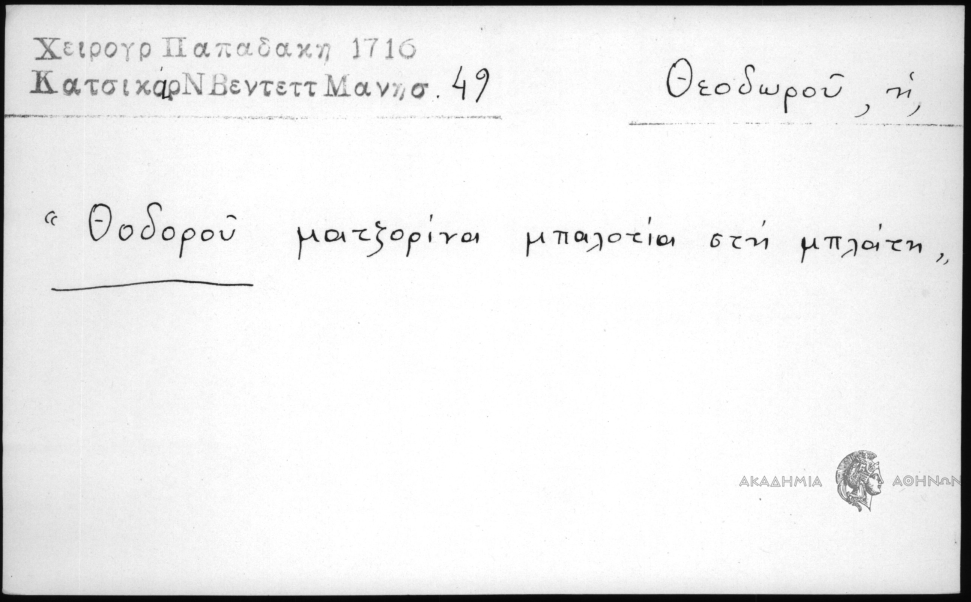 Χειρογρ Παπαδακη 1716
ΚατσικάρΝ Βεντεττ Μανησ. 49
Θεοδωροῦ, ἡ,
“ Θοδοροῦ ματζορίνα μπαλοτία στή μπλάτη „
ΑΚΑΔΗΜΙΑ ΑΘΗΝΩΝ